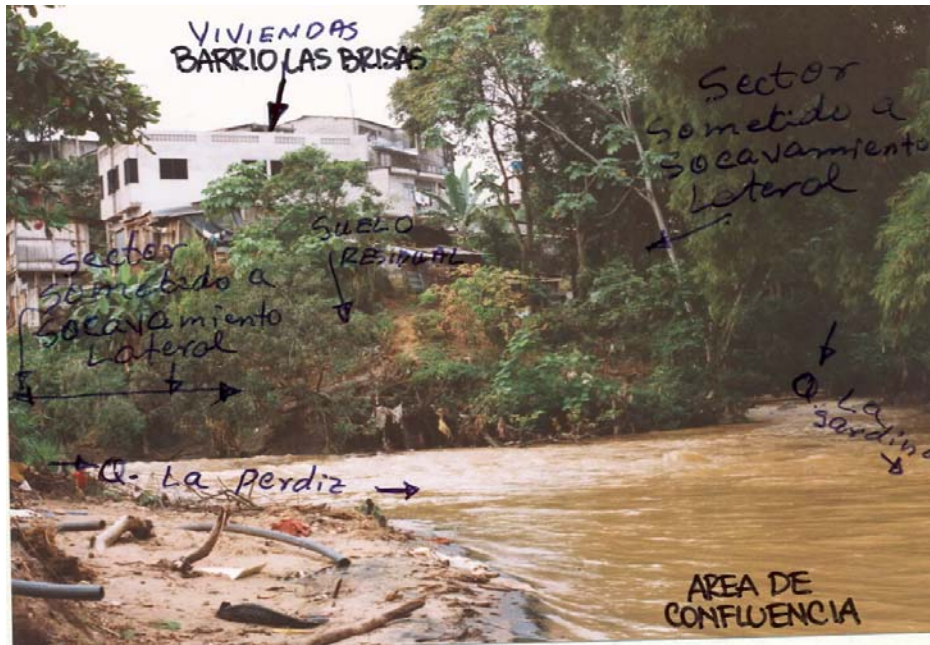 VIVIENDAS
BARRIO LAS BRISAS
Sector
Sometido a
Socavamiento
Lateral
SUELO
RESIDUAL
Sector
Sometido a
Socavamiento
Lateral
Q. La
Sardina
Q. La Perdiz
AREA DE
CONFLUENCIA